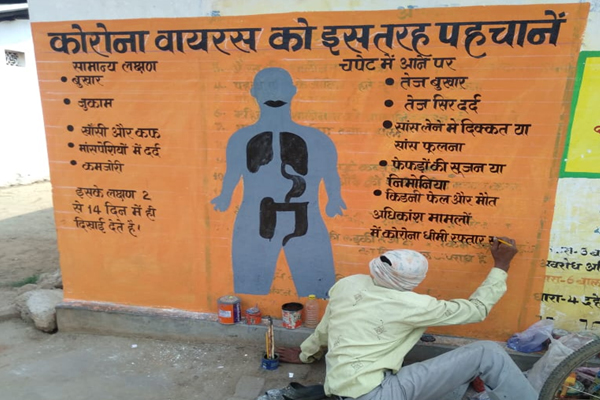 कोरोना वायरस को इस तरह पहचानें
सामान्य लक्षण
• बुखार
• जुकाम
• खाँसी और कफ
• मांसपेशियों में दर्द
• कमजोरी
इसके लक्षण 2
से 14 दिन में ही
दिखाई देते हैं।
चपेट में आने पर
• तेज बुखार
• तेज सिर दर्द
• सांस लेने में दिक्कत या
सांस फूलना
• फेफड़ों की सूजन या
निमोनिया
• किडनी फेल और मौत
अधिकांश मामलों
में कोरोना धीमी रफ्तार